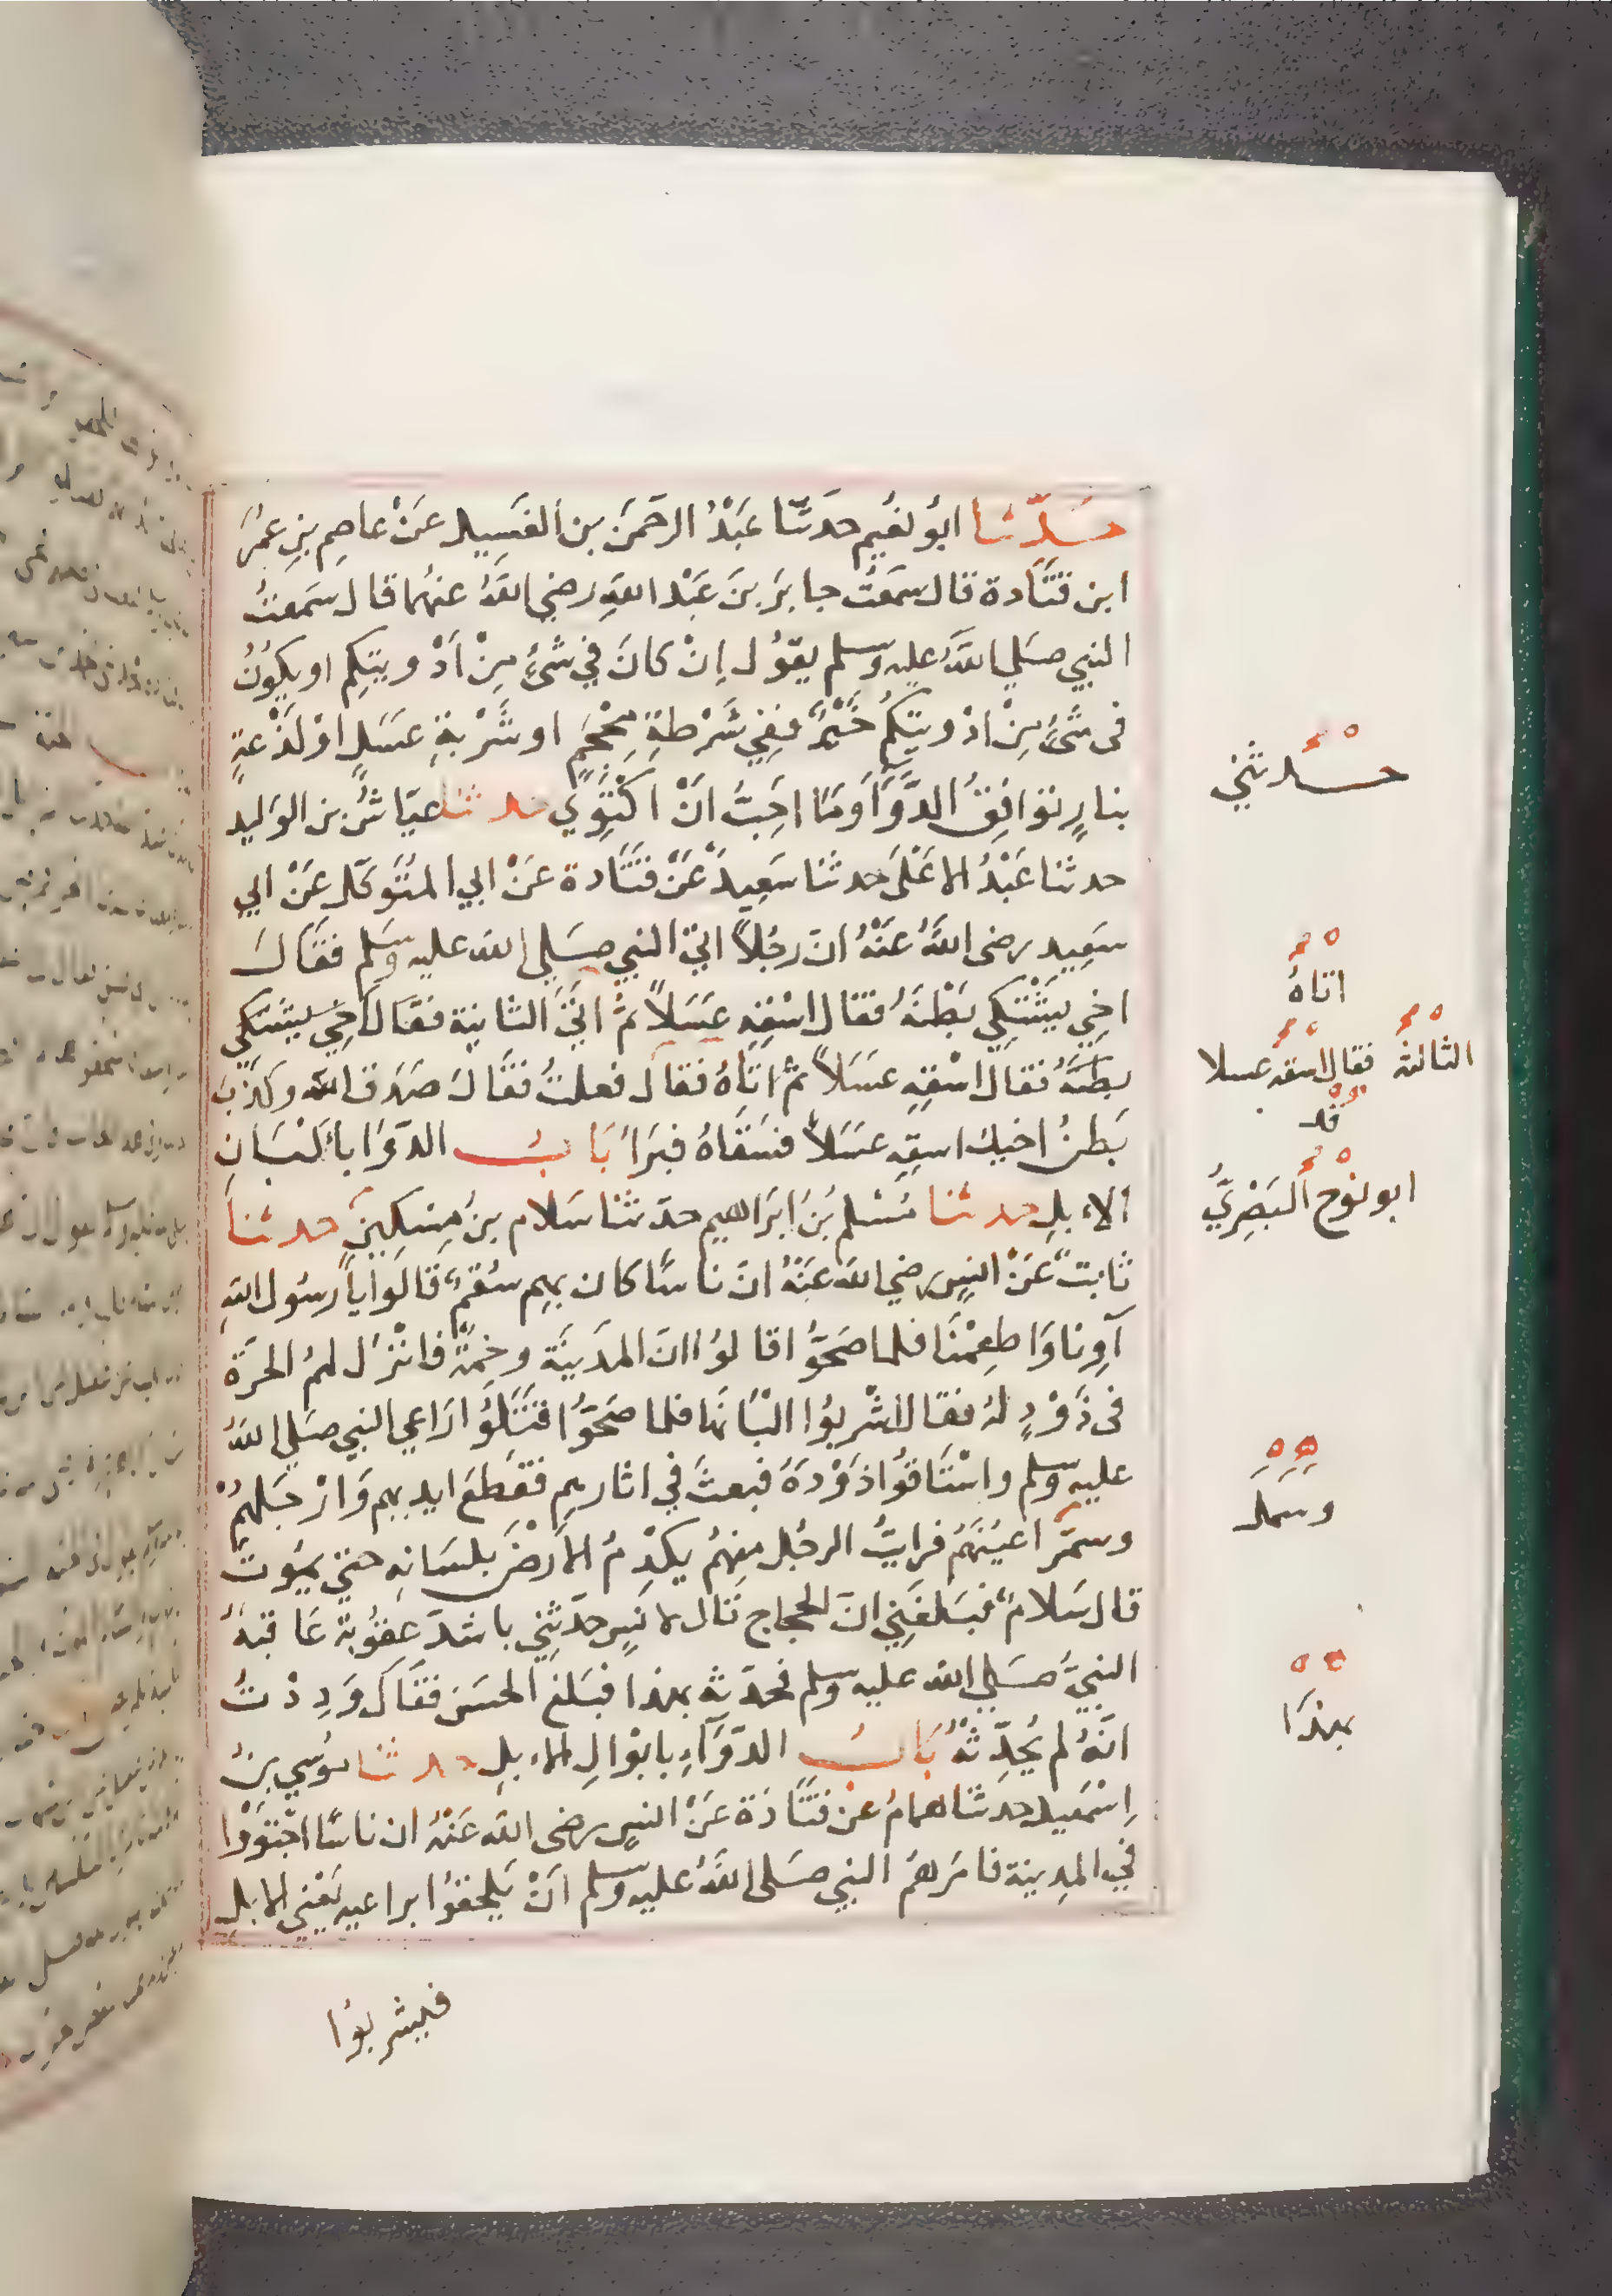 حَدَّثَنَا ابُو نعَيم حدثنا عَبْدُ الرحمَن بن الغَسِيل عَنْ عاصِم بنِ عمُرَ
ابن قَتَادة قال سمَعتُ جابرَ بنَ عَبْد اللهِ رضي اللهُ عنهُما قال سَمَعتُ
النبي صَلي اللهُ عليه وسلم يقوُل اِنْ كانَ في شئٍ مِنْ اَدْويتكِم او يكوُنُ
فى شئٍ مِنْ ادْويتكِمُ خَيْرٌ ففِي شَرْطةِ مِحْجَمٍ او شَرْبةِ عَسَلٍ اوْ لَذْعةٍ
بنارٍ توَافِقُ الدَّوَآ وَمَا احِبُّ انْ اكْتَوِي حدثنا عيَاشُ بن الوَليد
حدثنا عَبْدُ الاعْلَى حدثنا سَعِيدٌ عَنْ قَتَادة عَنْ ابي المتوَكل عَنْ ابي
سَعِيد رضى اللهُ عَنْهُ انَ رجُلاً اتىَ النبي صَلي الله عليه وسلم فقَالَ
اخِي يَشْتكي بَطْنَهُ فقال اسْقِهِ عَسَلاً ثمُ اتىَ الثانية فقال اخِي يشتكي
بطنَهُ فقال اسْقِهِ عسَلاً ثمُ اتاهُ فقال فعلتُ فقالَ صَدَق الله وكذَبَ
بَطنُ اخيك اسقِهِ عسَلاً فسَقاهُ فبرَأ بَابُ الدوَا بألبَانِ
الابلِ حدثنا مُسْلم بُن ابرَاهيم حدثنا سَلام بنُ مِسْكينٍ حدثنا
ثابتٌ عَنْ انسٍ رضي الله عَنْهُ انَ ناسًا كان بهِم سُقمٌ قالوا يا رسُول اللهِ
آوِنا وَاطعِمْنَا فلما صَحَوُّا قالوُا ان المَدينَة وخِمةٌ فانْزلهُمُ الحرَة
فى ذَوْدٍ لهُ فقال اشْربوُا البْانهَا فلما صَحَوُّا قتَلوُا رَاعي النبي صَلي اللهُ
عليهِ وسلم واسْتَاقوُا ذوْدَهُ فبعثَ في اثارهِم فقطعَ ايديهِم وَارْجلهُمْ
وسمَّرَ اعيُنَهُم فرايتُ الرجُل مِنهُمُ يكْدِمُ الارْضَ بلسَانِهِ حتي يموُتَ
قال سَلامٌ فبَلغَنِي انَ الحجاج قال لانَسٍ حدّثِني باشَدّ عقُوبة عَاقبَهُ
النبيُّ صَلي الله عليه وسلم فحدثه بهذا فبَلغَ الحسَن فقالَ وَدِدْتُ
انَّهُ لم يُحدّثهُ بَابُ الدوَآءِ بابْوالِ الابلِ حدثنا موُسي بنُ
اِسْمَعيل حدثنا همامُ عن قتَادَة عَنْ انسٍ رضى الله عَنْهُ ان ناسًا اجْتَوَوْا
في المدِينة فامَرَهمُ النبي صَلى اللهُ عليه وسلم انْ يَلحقوُا براعيهِ يَعْني الابل
فيشربوُا
حدثني
اتاهُ
الثالثة فقال اسقه عسلا
قد
ابو نوُح البَصْرِيُّ
وسمل
بهذَا